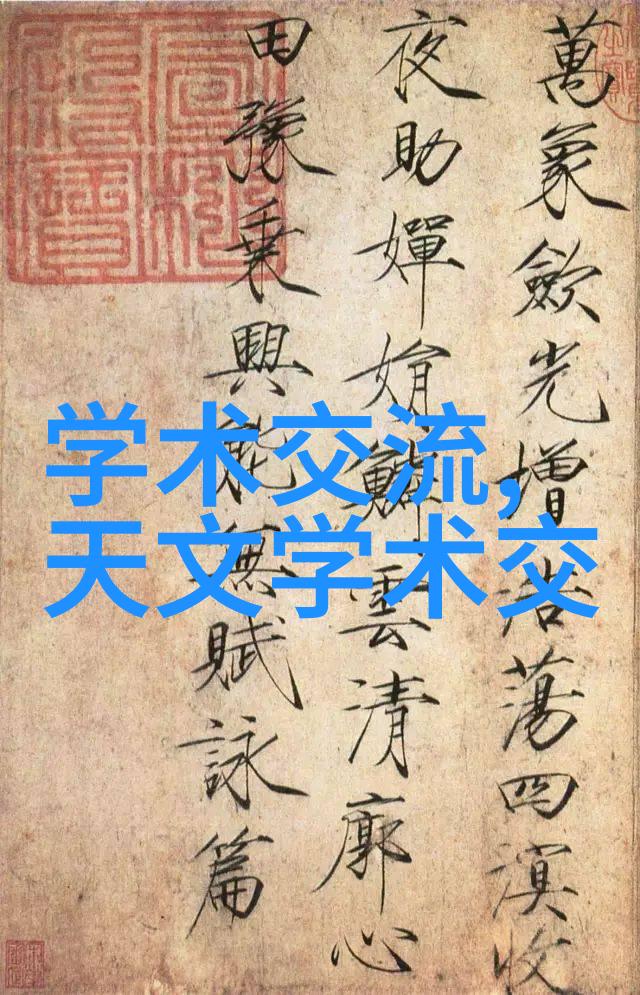 萬象歛光增浩蕩四溟收
夜助嬋娟鱗雲清廓心
田豫乗興能無賦詠篇
学术交流,
天文学术交